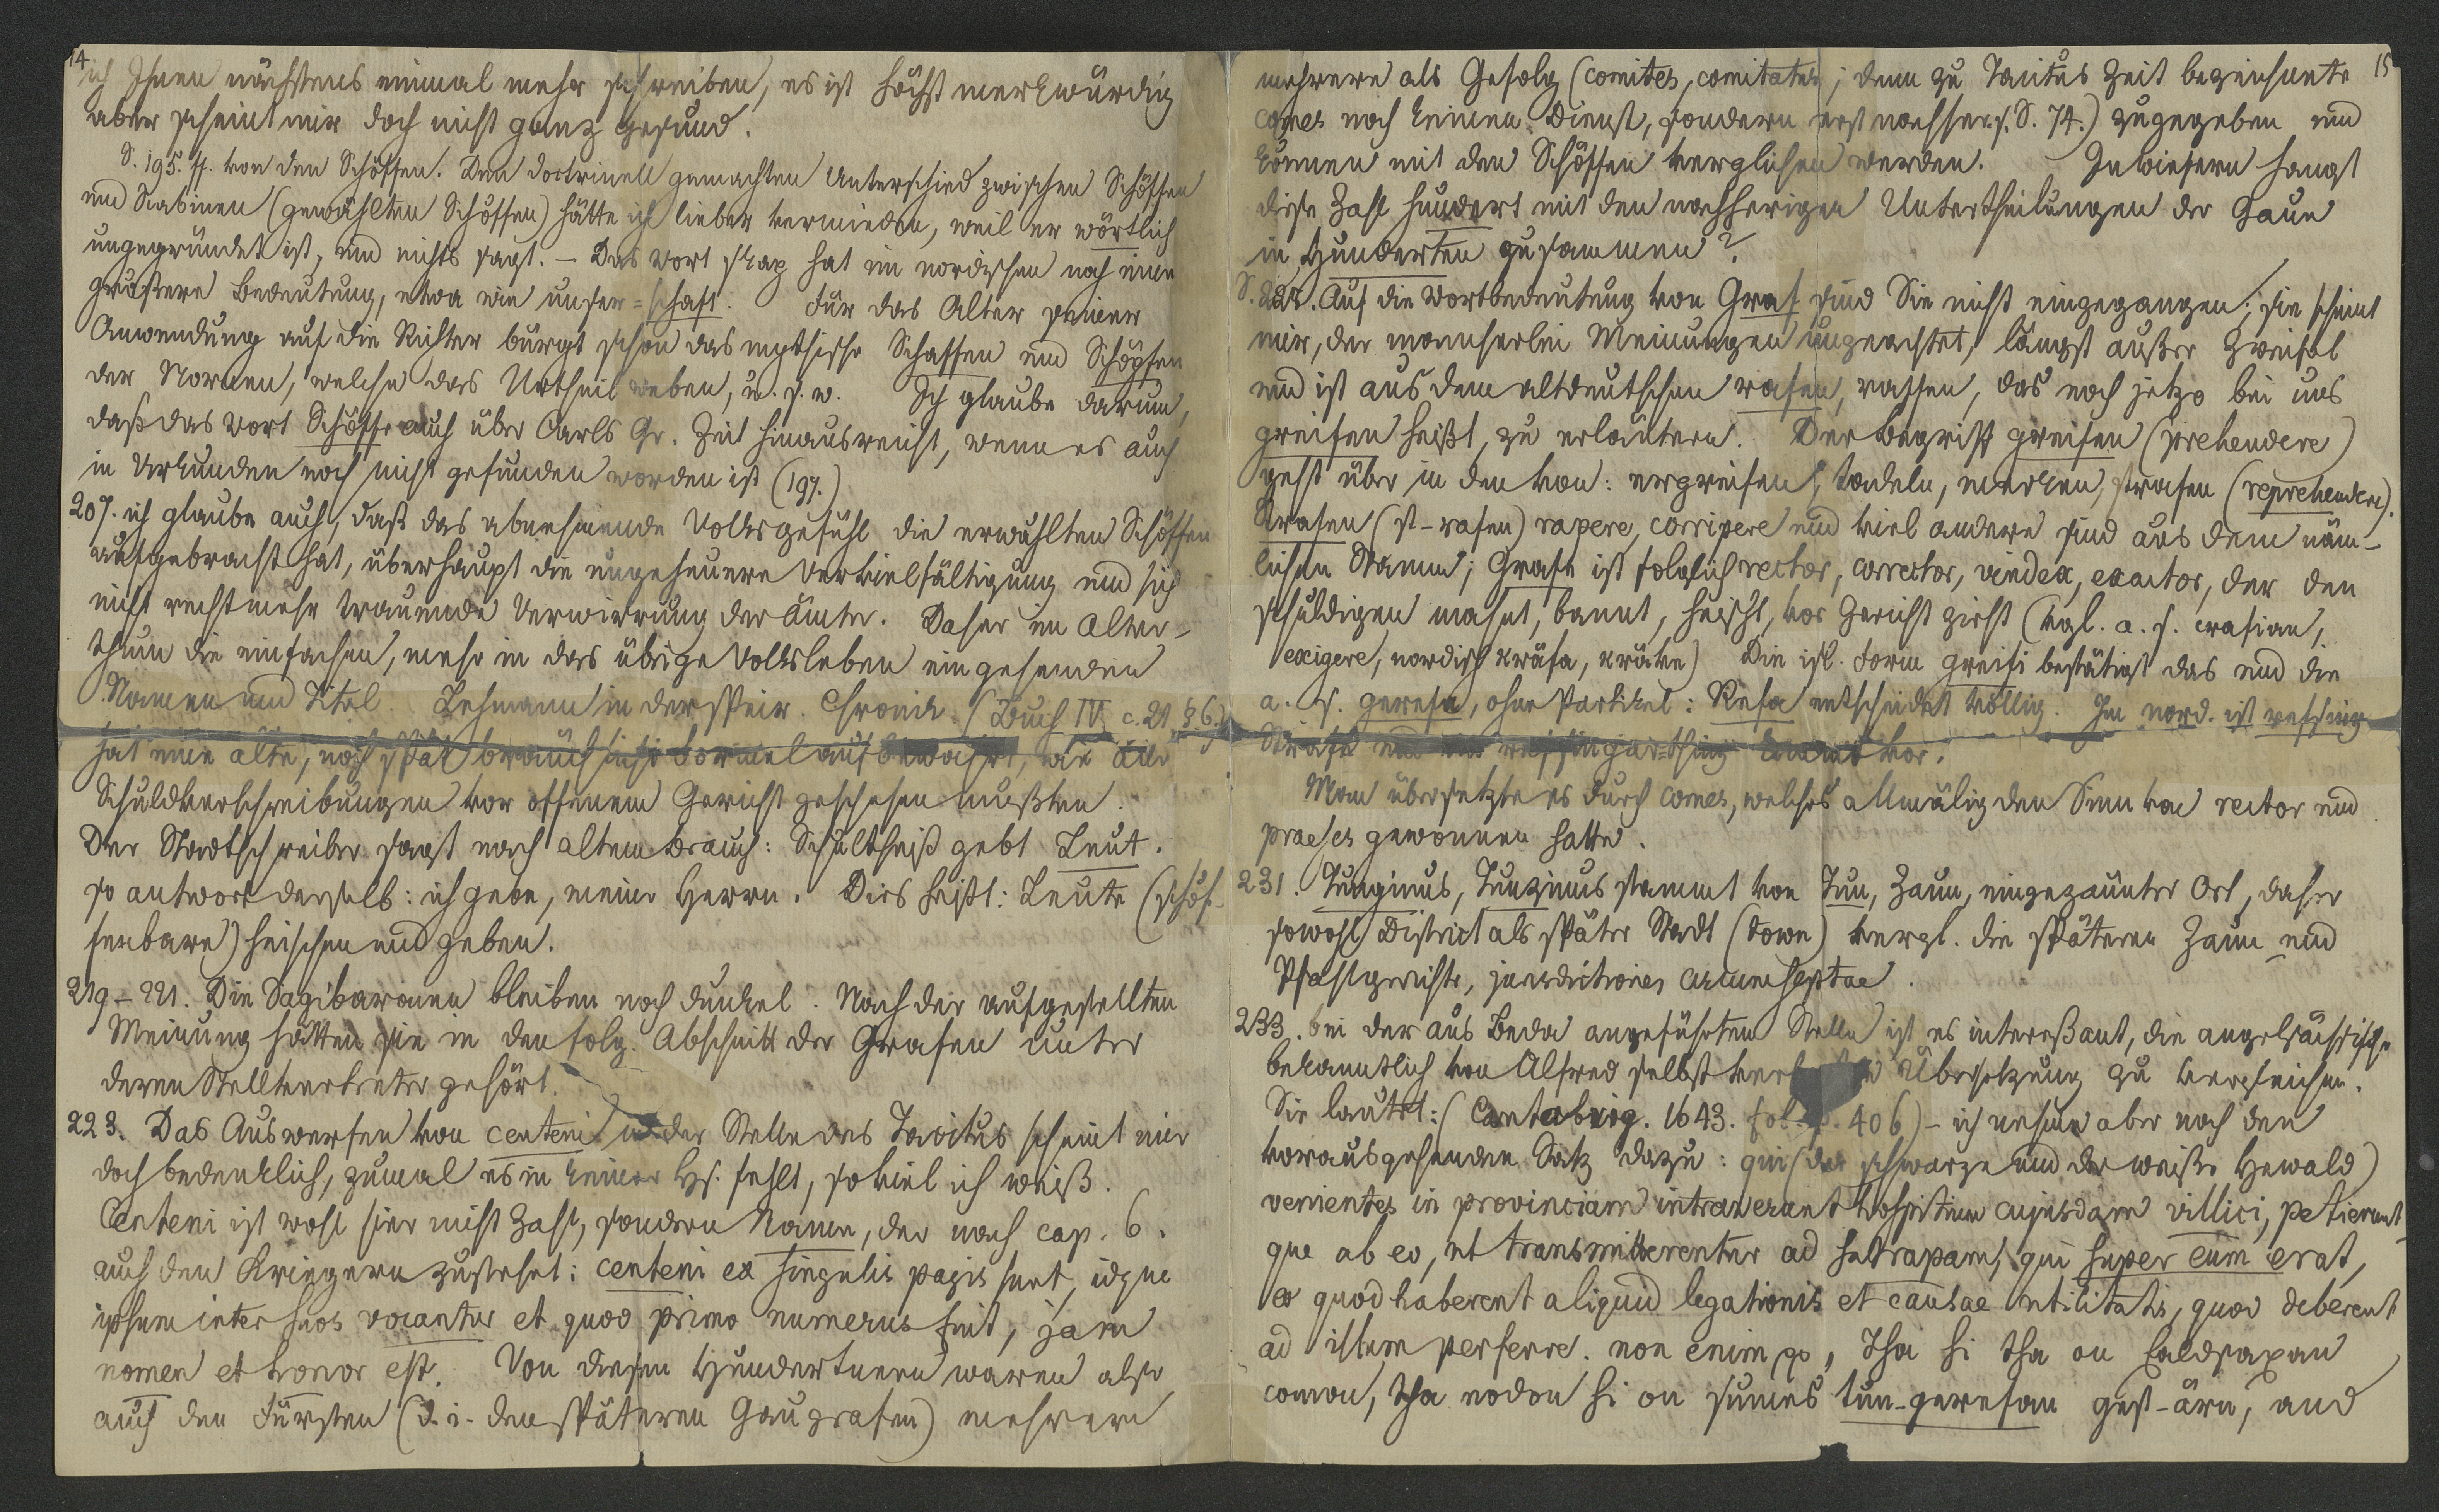 14.
ich Ihnen nächstens einmal mehr schreiben, es ist höchst merkwürdig
aber scheint mir doch nicht ganz gesund.
S. 195. ff. von den Schöffen. Den doctrinell gemachten Unterschied zwischen Schöffen
und Scabinen (gewählten Schöffen) hätte ich lieber vermieden, weil er wörtlich
ungegründet ist, und nichts sagt. – Das Wort skap hat im nordischen noch eine
größere Bedeutung, etwa wie unser =schaft. Für das Alter seiner
Anwendung auf die Richter bürgt schon das mythische Schaffen und Schöpfen
der Nornen, welche das Urtheil weben, u. s. w. Ich glaube darum,
daß das Wort Schöffe auch über Carls Gr. Zeit hinausreicht, wenn es auch
in Urkunden noch nicht gefunden worden ist (197.)
207. ich glaube auch, daß das abnehmende Volksgefühl die erwählten Schöffen
aufgebracht hat, überhaupt die ungeheuere Vervielfältigung und sich
nicht recht mehr trauende Verwirrung der Ämter. Daher im Alter-
thum die einfachen, mehr in das übrige Volksleben eingehenden
Namen und Titel. Lehmann in der Speir. Chronik (Buch IV. c. 21. § 6.)
hat eine alte, noch spät bräuchliche Formel aufbewahrt, wie alle
Schuldverschreibungen vor offenem Gericht geschehen mußten.
Der Stadtschreiber sagt nach altem Brauch: Schultheiß gebt Leut.
so antwort derselb: ich gebe, meine Herrn. Dies heißt: Leute (schöf-
fenbare) heischen und geben.
219–221. Die Sagibaronen bleiben noch dunkel. Nach der aufgestellten
Meinung hätten sie in den folg. Abschnitt der Grafen unter
deren Stellvertreter gehört.
223. Das Auswerfen von centeni in der Stelle des Tacitus scheint mir
doch bedenklich, zumal es in keiner Hs. fehlt, so viel ich weiß.
Centeni ist wohl hier nicht Zahl, sondern Name, der nach cap. 6.
auch den Kriegern zusteht: centeni ex singulis pagis sunt, idque
ipsum inter suos vocantur et quod primo numerus fuit, jam
nomen et honor est. Von diesen Hundertnern waren also
auch den Fürsten (d. i. den späteren Gaugrafen) mehrere
15
mehrere als Gefolg (comites, comitatus; denn zu Tacitus Zeit bezeichnete
comes noch keinen Dienst, sondern erst nachher. s. S. 74.) zugegeben und
können mit den Schöffen verglichen werden. Inwiefern hangt
diese Zahl hundert mit den nachherigen Untertheilungen der Gaue
in Hunderten zusammen?
S. Auf die Wortbedeutung von Graf sind Sie nicht eingegangen; sie scheint
mir, der mancherlei Meinungen ungeachtet, längst außer Zweifel
und ist aus dem altdeutschen rafen, raffen, das noch jetzo bei uns
greifen heißt, zu erläutern. Der Begriff greifen (prehendere)
geht über in den von: ergreifen, tadeln, merken, strafen (reprehendere).
Strafen (st-rafen) rapere, corripere und viel andere sind aus dem näm-
lichen Stamm; Grafe ist folglich rector, corrector, vindex, exactor, der den
schuldigen mahnt, bannt, heischt, vor Gericht zieht (vgl. a. s. crafian,
exigere, nordisch kräfa, kräve) Die isl. Form greifi bestätigt das und die
a. s. gerefa, ohne Partikel: Refa entscheidet völlig. Im nord. ist refsing
Strafe und refsingar-thing kommt vor.
Man übersetzte es durch comes, welches allmälig den Sinn von rector und
praeses gewonnen hatte.
231. Tunginus, Tunzinus stammt von Tun, Zaun, eingezäunter Ort, daher
sowohl District als später Stadt (town) vergl. die späteren Zaun und
Pfahlgerichte, jurisdictiones circumseptae.
233. bei der aus Beda angeführten Stelle ist es interessant, die angelsächsische
bekanntlich von Alfred selbst Übersetzung zu vergleichen.
Sie lautet: (Cantabrig. 1643. fol. p. 406) – ich nehme aber noch den
vorausgehenden Satz dazu: qui (der schwarze und der weiße Hewald)
venientes in provinciam intraverunt hospitium cujusdam villici, petierunt
que ab eo, ut transmitterentur ad satrapam, qui super eum erat,
eo quod haberent aliquid legationis et causae utilitatis, quod deberent
ad illum perferre. non enim pp „Tha hi tha on Ealdsaxan
comon, tha eodon hi on sumes tun-gerefan gest-ärn, and